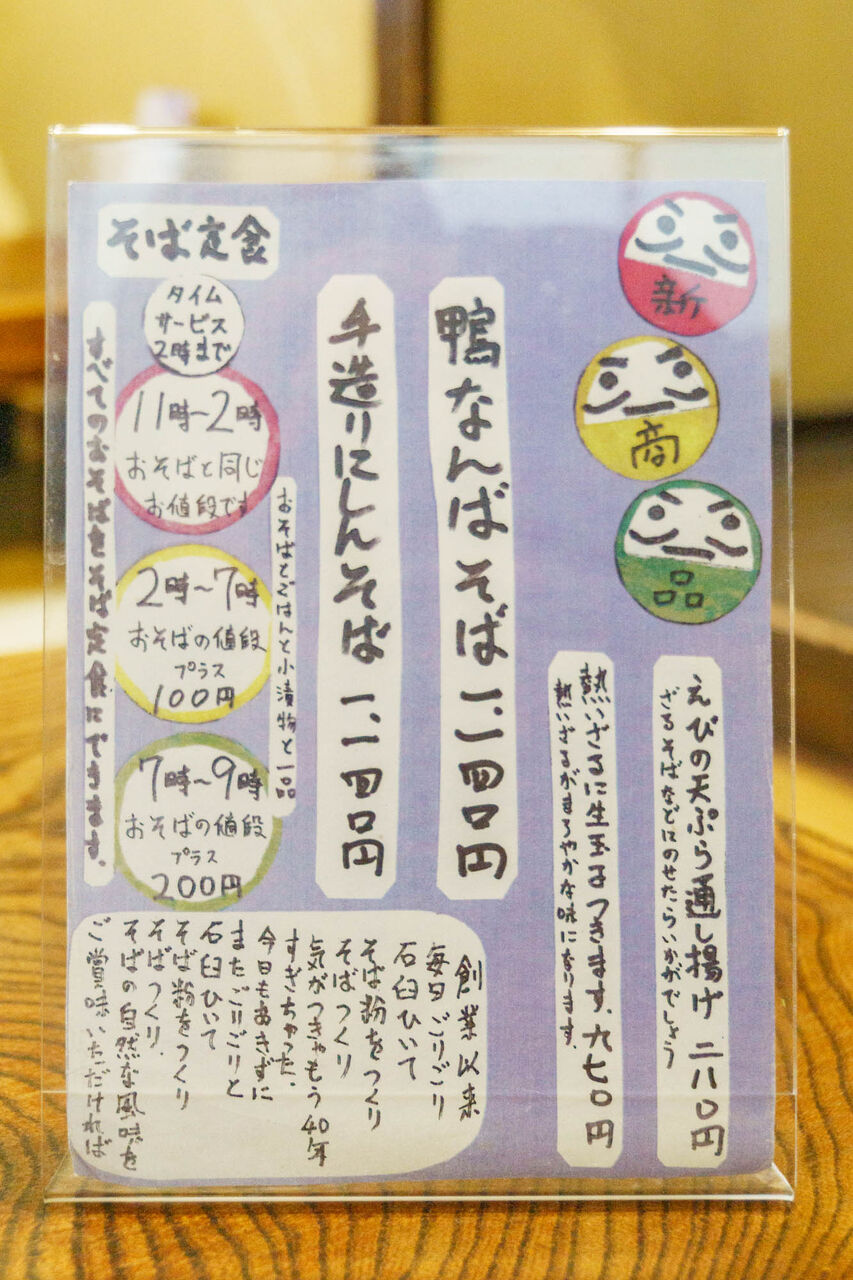 新
商
品
えびの天ぷら通し揚げ 二八〇円
ざるそばなどにのせたらいかがでしょう
熱いざるに生玉子つきます、六七〇円
熱いざるがまろやかな味になります。
鴨なんばそば 一、一四〇円
手造りにしんそば 一、一四〇円
そば定食
タイム
サービス
2時まで
11時〜2時
おそばと同じ
お値段です
2時〜7時
おそばの値段
プラス
100円
7時〜9時
おそばの値段
プラス
200円
おそばとごはんと小漬物と一品
すべてのおそばをそば定食にできます。
創業以来
毎日ごりごり
石臼ひいて
そば粉をつくり
そばつくり
気がつきゃもう40年
すぎちゃった、
今日もあきずに
またごりごりと
石臼ひいて
そば粉をつくり
そばつくり、
そばの自然な風味を
ご賞味いただければ